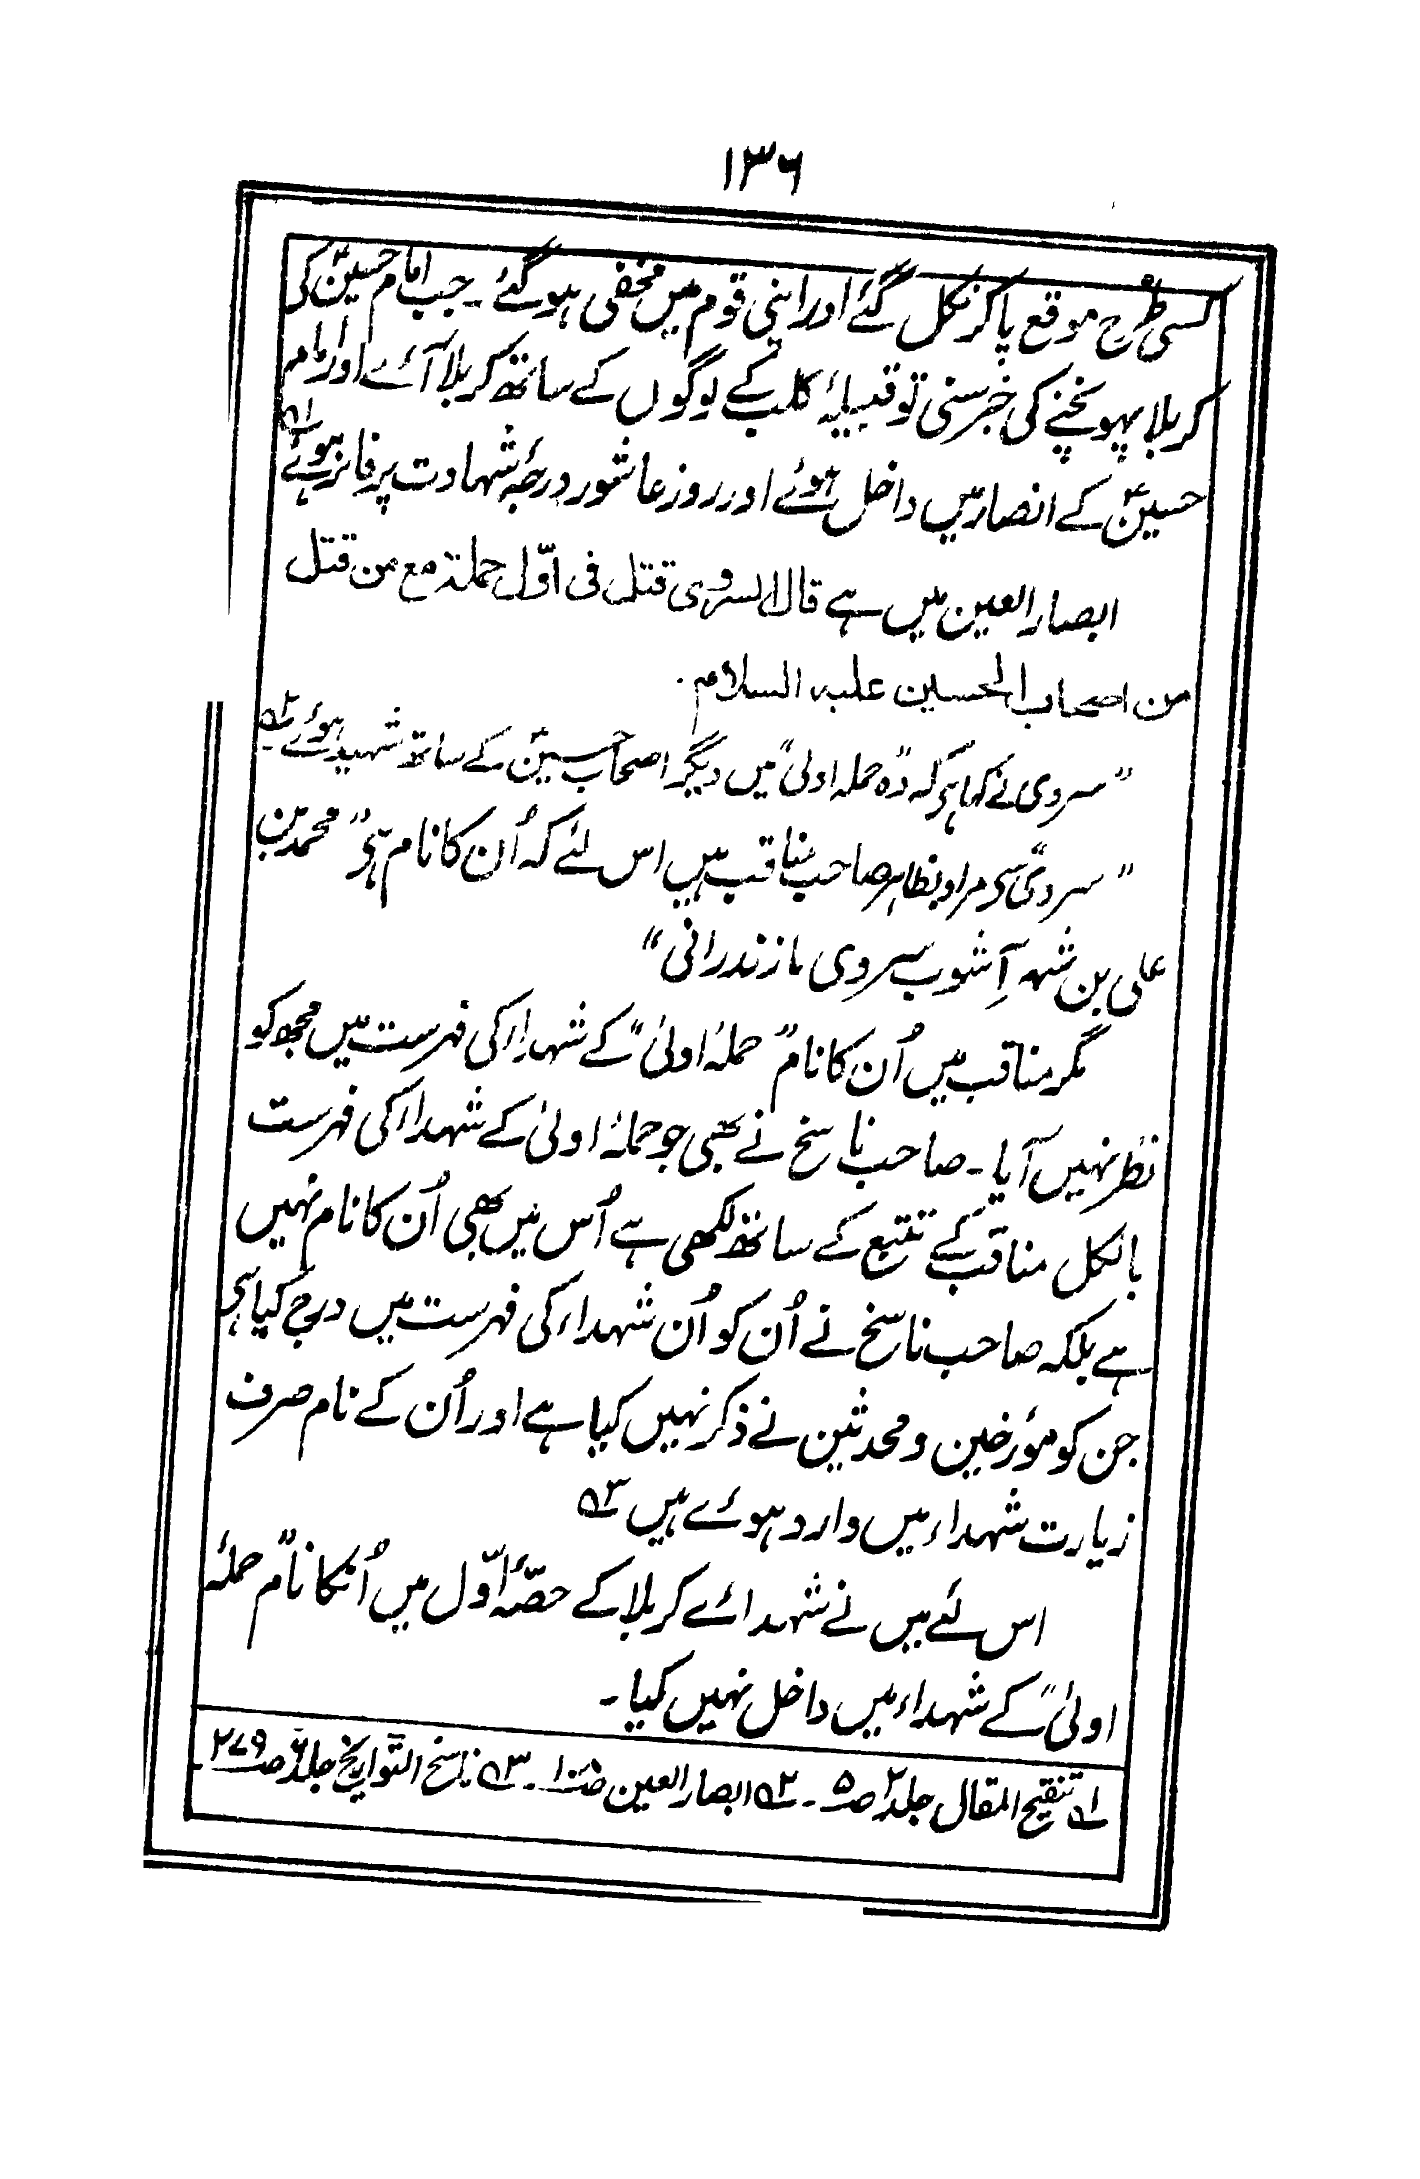 ۱۳۶
کسی طرح موقع پاکر نکل گئے اور اپنی قوم میں مخفی ہوگئے۔ جب امام حسینؑ کی
کربلا پہونچنے کی خبر سنی تو قبیلۂ کلب کے لوگوں کے ساتھ کربلا آئے اور امام
حسینؑ کے انصار میں داخل ہوئے اور روز عاشور درجۂ شہادت پر فائز ہوئے ۱ه
ابصار العین میں ہے قال السروی قتل فی اوّل حملة مع من قتل
من اصحاب الحسین علیہ السلام۔
"سروی نے کہا ہی کہ وہ "حملہ اولیٰ" میں دیگر اصحاب حسینؑ کے ساتھ شہید ہوئے ۲ه
"سروی" سی مراد بظاہر صاحب مناقب ہیں اس لئے کہ اُن کا نام ہی "محمد بن
علی بن شہر آشوب سروی مازندرانی"
مگر مناقب میں اُن کا نام "حملۂ اولیٰ" کے شہداء کی فہرست میں مجھ کو
نظر نہیں آیا۔ صاحب ناسخ نے بھی جو حملۂ اولیٰ کے شہداء کی فہرست
بالکل مناقب کے تتبع کے ساتھ لکھی ہے اُس میں بھی اُن کا نام نہیں
ہے بلکہ صاحب ناسخ نے اُن کو اُن شہداء کی فہرست میں درج کیا ہی
جن کو مؤرخین و محدثین نے ذکر نہیں کیا ہے اور اُن کے نام صرف
زیارت شہداء میں وارد ہوئے ہیں ۳ه
اس لئے میں نے شہدائے کربلا کے حصّۂ اوّل میں اُنکا نام "حملۂ
اولیٰ" کے شہداء میں داخل نہیں کیا۔
۱ه تنقیح المقال جلد ۲ ص ۵۔ ۲ه ابصار العین ص ۔ ۳ه ناسخ التواریخ جلد ۶ ص ۲۷۹۔